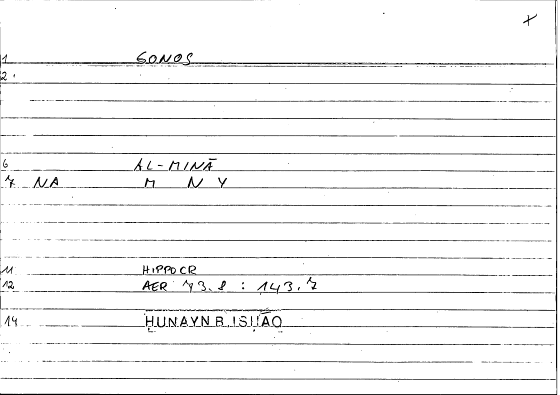 +
1 GONOS
2.
6 AL-MINĀ
7 NA M N Y
11 HIPPOCR
12 AER 73.8 : 143.7
14 ḤUNAYN B. ISḤĀQ